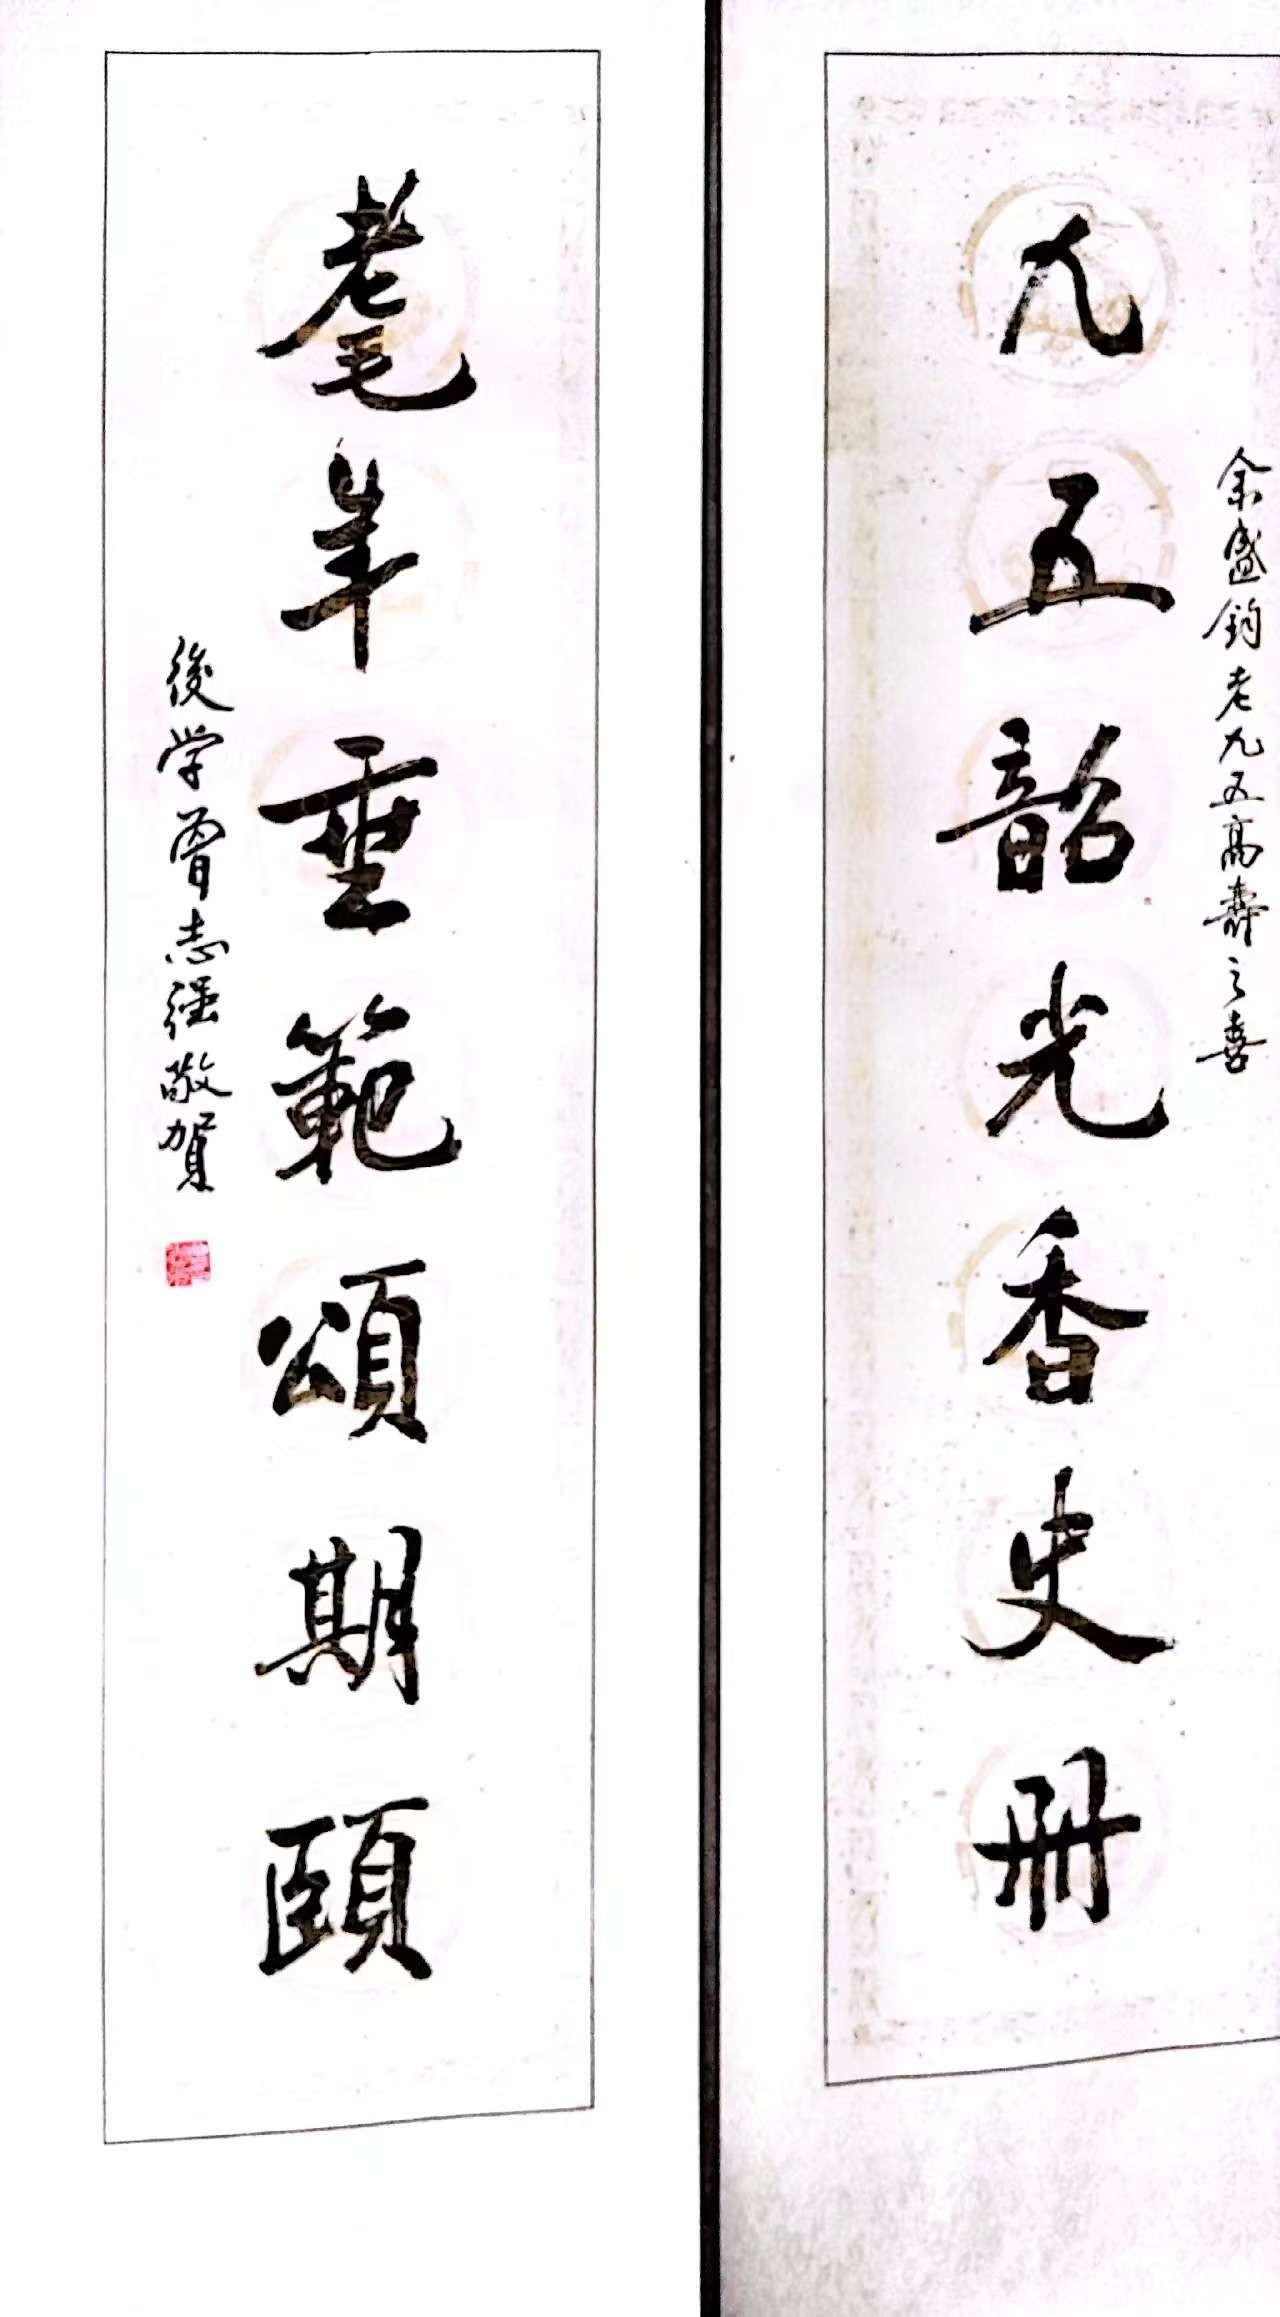 余盛鈞老九五高壽之喜
九五韶光香史冊
耄年垂範頌期頤
後学曾志强敬賀